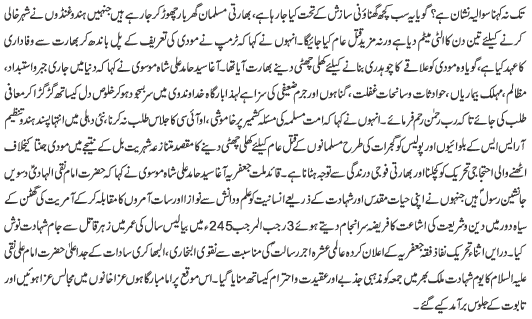 تک نہ کہنا سوالیہ نشان ہے؟ گویا یہ سب کچھ گھناؤنی سازش کے تحت کیا جا رہا ہے، بھارتی مسلمان گھر بار چھوڑ کر جا رہے ہیں جنہیں ہندو غنڈوں نے شہر خالی
کرنے کیلئے تین دن کا الٹی میٹم دیا ہے ورنہ مزید قتل عام کیا جائیگا۔ انہوں نے کہا کہ ٹرمپ نے مودی کی تعریف کے پل باندھ کر بھارت سے وفاداری
کا عہد کیا ہے، گویا وہ مودی کو علاقے کا چوہدری بنانے کیلئے کھلی چھٹی دینے بھارت آیا تھا۔ آغا سید حامد علی شاہ موسوی نے کہا کہ دنیا میں جاری جبر و استبداد،
مظالم، مہلک بیماریاں، حوادثات و سانحات غفلت، گناہوں اور جرم ضعیفی کی سزا ہے لہذا بارگاہ خداوندی میں سربسجود ہو کر خلوص دل کیساتھ گڑگڑا کر معافی
طلب کی جائے تا کہ رب رحمٰن رحم فرمائے۔ انہوں نے کہا کہ امت مسلمہ کی مسئلہ کشمیر پر خاموشی، او آئی سی کا اجلاس طلب نہ کرنا، نئی دہلی میں انتہا پسند ہندو تنظیم
آر ایس ایس کے بلوائیوں اور پولیس کو گجرات کی طرح مسلمانوں کے قتل عام کیلئے کھلی چھٹی دینے کا مقصد متنازعہ شہریت بل کے نتیجے میں مودی جنتا کیخلاف
اٹھنے والی احتجاجی تحریک کو کچلنا اور بھارتی فوجی درندگی سے توجہ ہٹانا ہے۔ قائد ملت جعفریہ آغا سید حامد علی شاہ موسوی نے کہا کہ حضرت امام نقی الہادیؑ دسویں
جانشین رسولؐ ہیں جنہوں نے اپنی حیات مقدس اور شہادت کے ذریعے انسانیت کو علم و دانش سے نوازا اور سات آمروں کا مقابلہ کر کے آمریت کی گھٹن کے
سیاہ دور میں دین و شریعت کی اشاعت کا فریضہ سرانجام دیتے ہوئے 3 رجب المرجب 245ء میں بیالیس سال کی عمر میں زہر قاتل سے جام شہادت نوش
کیا۔ دریں اثناء تحریک نفاذ فقہ جعفریہ کے اعلان کردہ عالمی عشرہ اجر رسالت کی مناسبت سے نقوی البخاری، البھاکری سادات کے جد اعلیٰ حضرت امام علی نقی
علیہ السلام کا یوم شہادت ملک بھر میں جمعہ کو مذہبی جذبے اور عقیدت و احترام کیساتھ منایا گیا۔ اس موقع پر امام بارگاہوں عزاخانوں میں مجالس عزا ہوئیں اور
تابوت کے جلوس برآمد کیے گئے۔